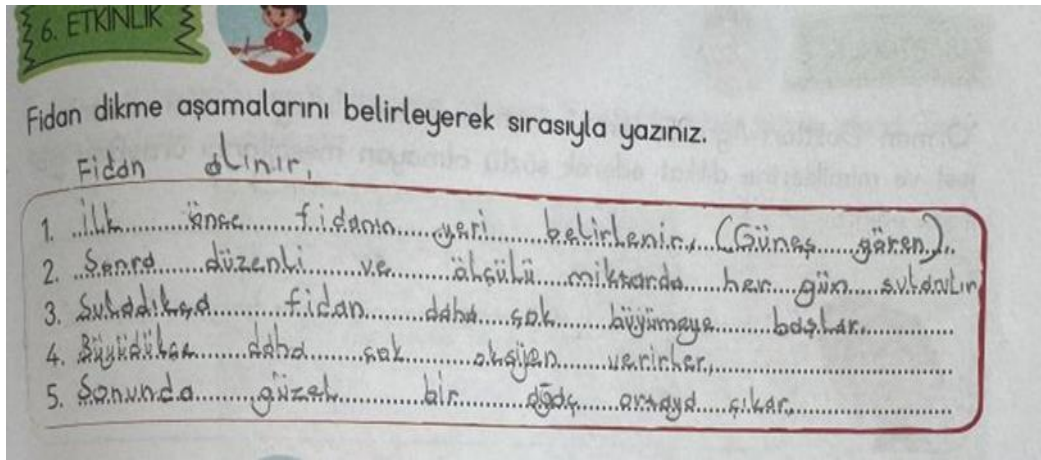 6. ETKİNLİK
Fidan dikme aşamalarını belirleyerek sırasıyla yazınız.
Fidan alınır.
1. İlk önce fidanın yeri belirlenir. (Güneş gören).
2. Sonra düzenli ve ölçülü miktarda her gün sulanılır
3. Suladıkça fidan daha çok büyümeye başlar.
4. Büyüdükçe daha çok oksijen verirler.
5. Sonunda güzel bir ağaç ortaya çıkar.